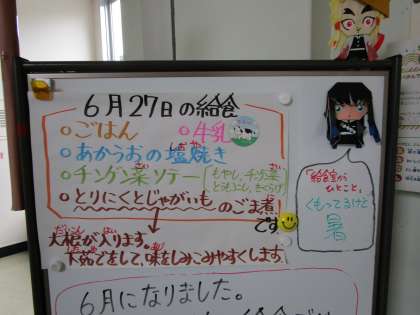 6月27日の給食
○ごはん ○牛乳
○あかうおの塩焼き
○チンゲン菜ソテー（もやし、チンゲン菜
とうもろこし、きくらげ）
○とりにくとじゃがいものごま煮
です
大根が入ります。
下茹でをして、味をしみこみやすくします
「給食室から
ひとこと」
くもってるけど
暑
6月になりました。